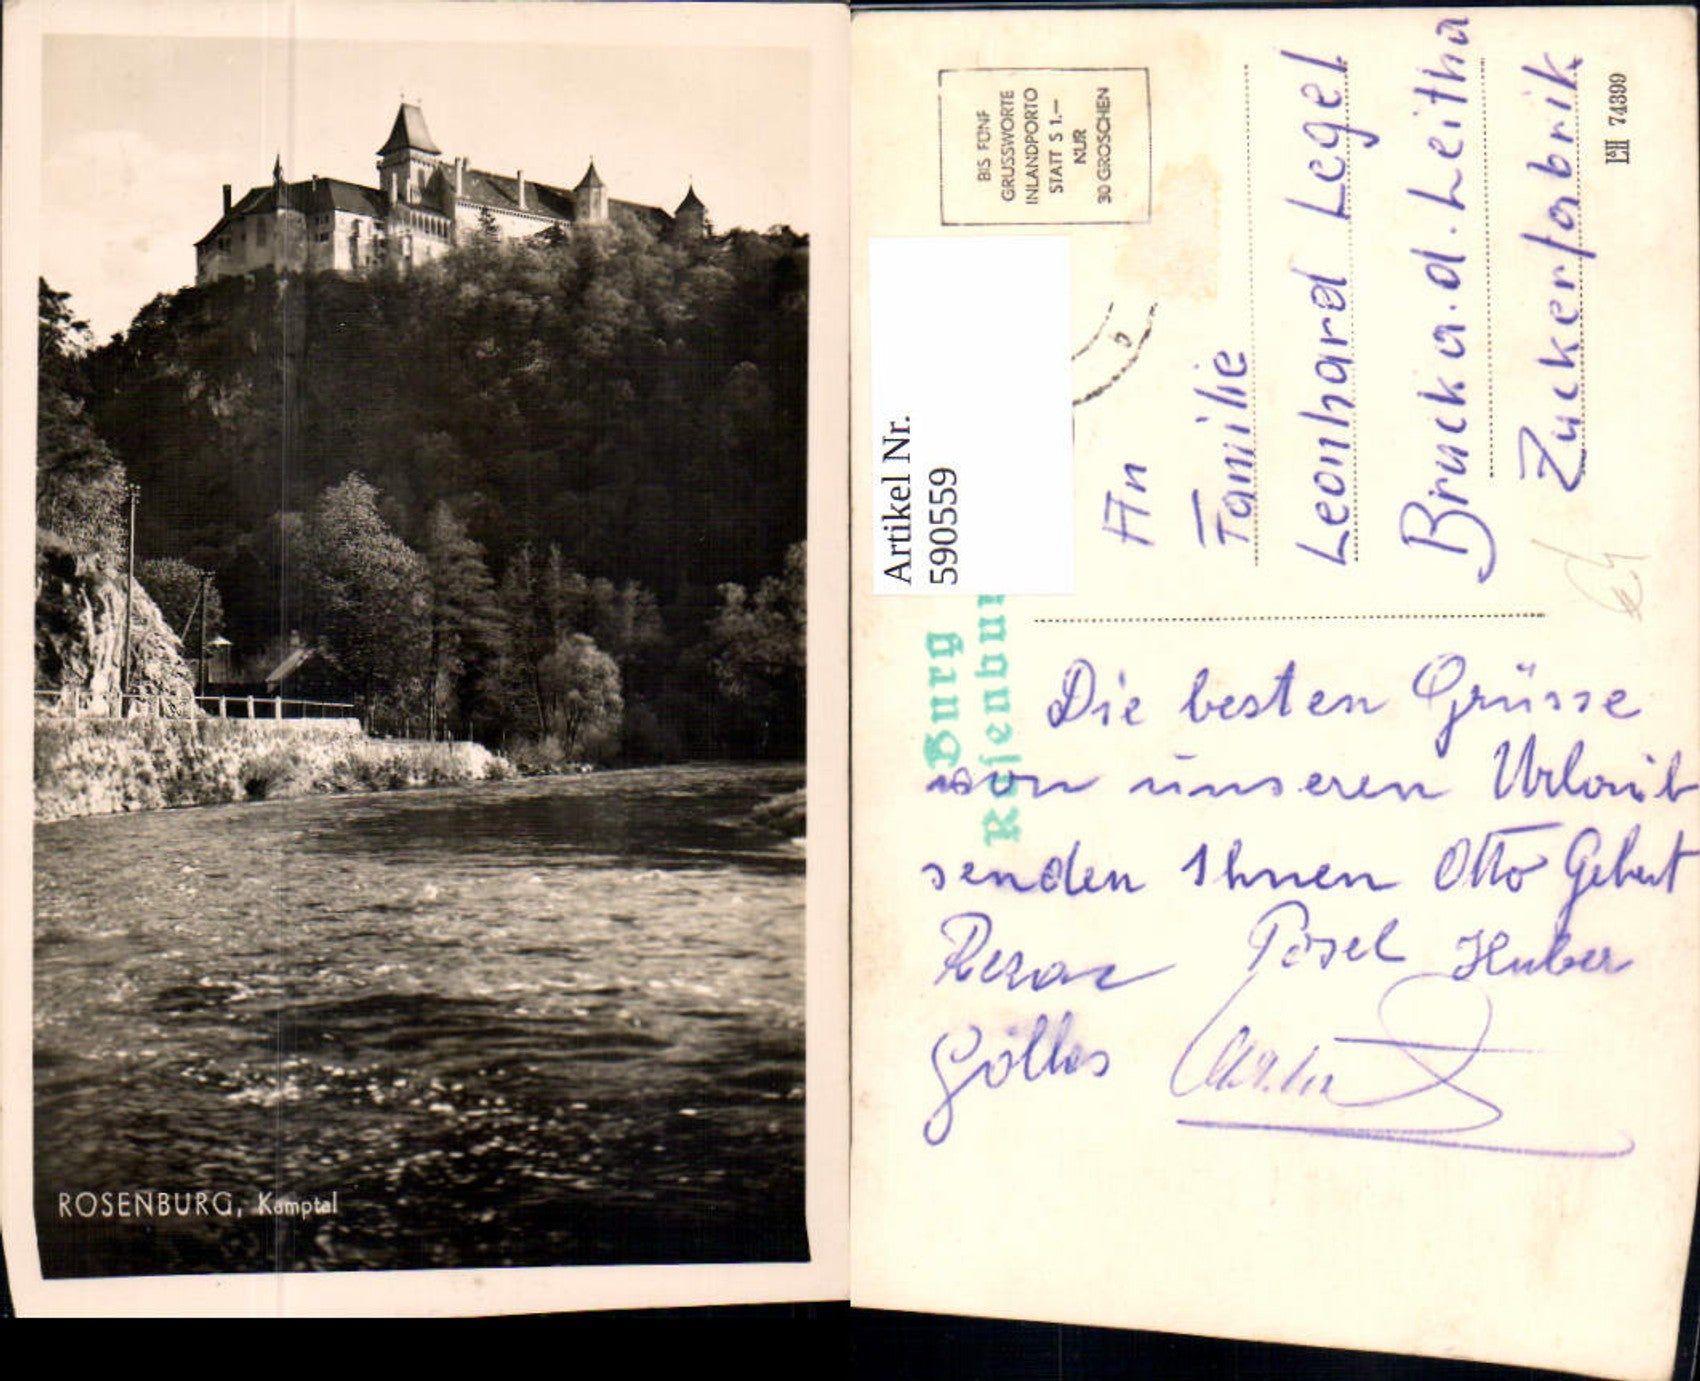 ROSENBURG, Kamptal
BIS FÜNF
GRUSSWORTE
INLANDPORTO
STATT S 1.—
NUR
30 GROSCHEN
Artikel Nr.
5905559
Burg
Rosenbur
An
Familie
Leonhard Legel
Bruck a. d. Leitha
Zuckerfabrik
74399
Die besten Grüsse
von unseren Urlaub
senden Ihnen Otto Gebert
Rezac Posel Huber